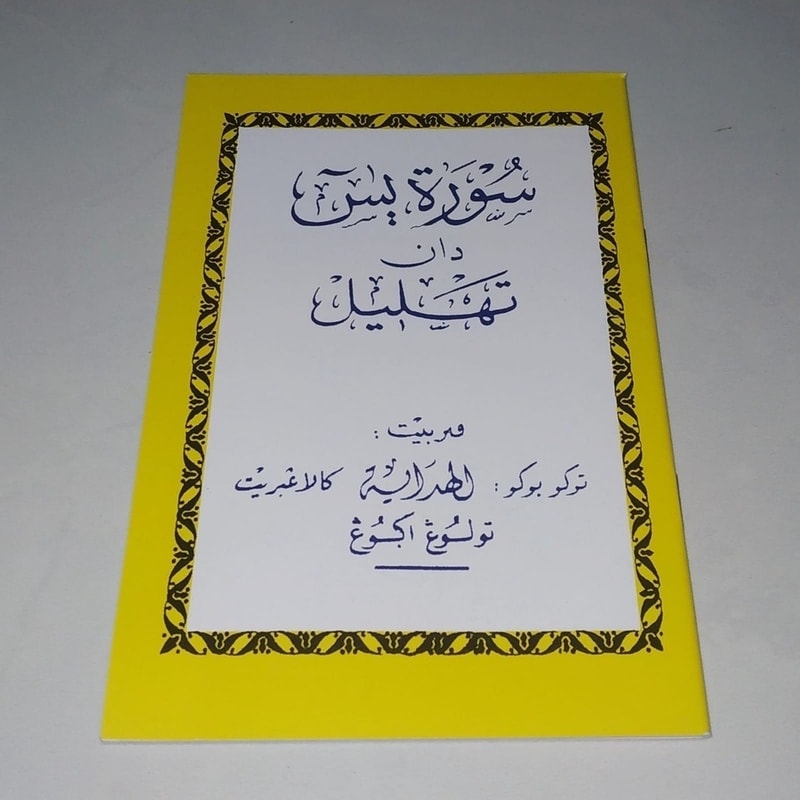 سُوْرَة يسٓ
دان
تَهْلِيْل
ڤنربيت :
توكو بوكو : الهداية كالاڠبريت
تولوڠ اݢوڠ